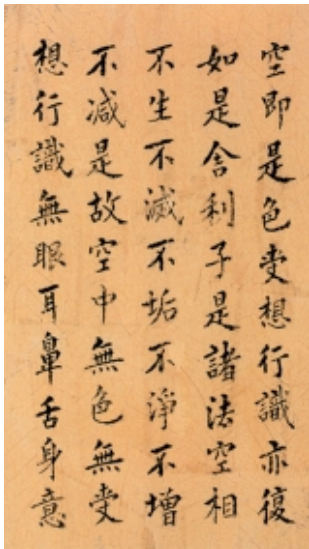 空即是色受想行識亦復
如是舍利子是諸法空相
不生不滅不垢不淨不增
不减是故空中無色無受
想行識無眼耳鼻舌身意